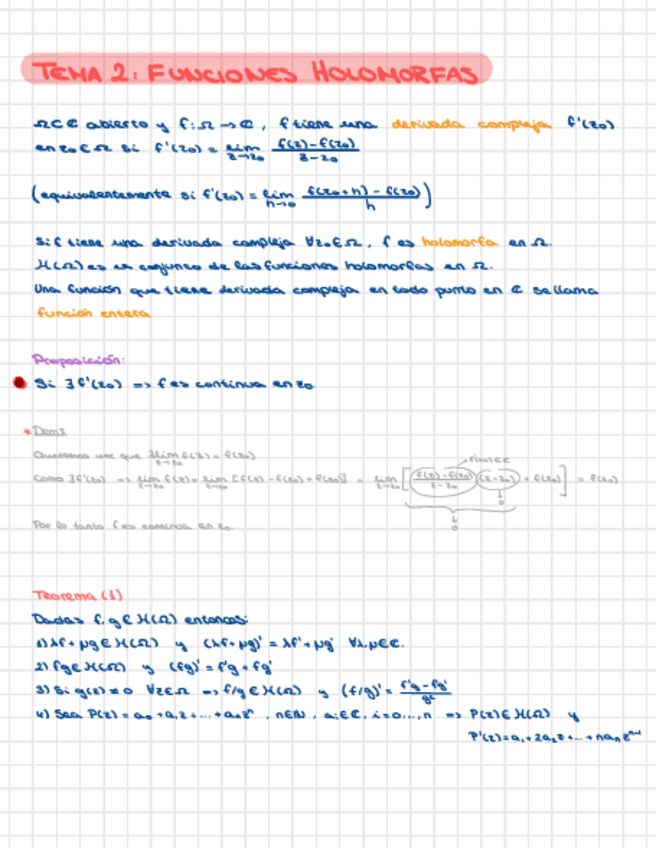 TEMA 2: FUNCIONES HOLOMORFAS
Ω⊂ℂ abierto y f: Ω → ℂ, f tiene una derivada compleja f'(z₀)
en z₀∈Ω si f'(z₀) = lim_{z→z₀} (f(z)-f(z₀))/(z-z₀)
(equivalentemente si f'(z₀) = lim_{h→0} (f(z₀+h)-f(z₀))/h)
Si f tiene una derivada compleja ∀z₀∈Ω, f es holomorfa en Ω.
H(Ω) es el conjunto de las funciones holomorfas en Ω.
Una función que tiene derivada compleja en todo punto en ℂ se llama
función entera
Proposición:
Si ∃f'(z₀) => f es continua en z₀
*Dem:
Queremos ver que ∃lim_{z→z₀} f(z) = f(z₀)
Como ∃f'(z₀) => lim_{z→z₀} f(z) = lim_{z→z₀} [f(z)-f(z₀)+f(z₀)] = lim_{z→z₀} [(f(z)-f(z₀))/(z-z₀) (z-z₀) + f(z₀)] = f(z₀)
f'(z₀)∈ℂ
0
0
Por lo tanto f es continua en z₀.
Teorema (1)
Dadas f, g ∈ H(Ω) entonces:
1) λf+μg ∈ H(Ω) y (λf+μg)' = λf'+μg' ∀λ,μ∈ℂ.
2) fg ∈ H(Ω) y (fg)' = f'g + fg'
3) Si g(z) ≠ 0 ∀z∈Ω => f/g ∈ H(Ω) y (f/g)' = (f'g-fg')/g²
4) Sea P(z) = a₀+a₁z+...+aₙzⁿ, n∈ℕ, aᵢ∈ℂ, i=0,...,n => P(z)∈H(Ω) y
P'(z) = a₁+2a₂z+...+naₙzⁿ⁻¹